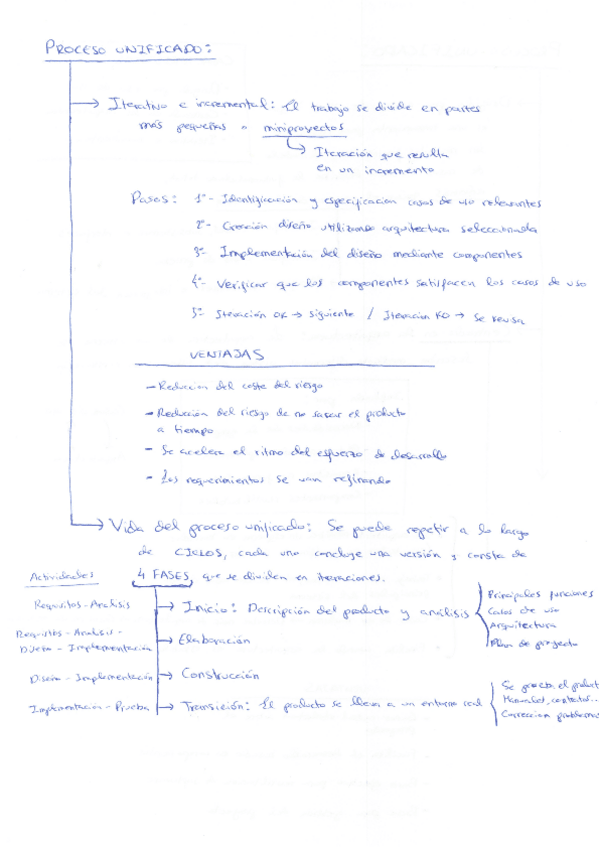 PROCESO UNIFICADO:
→ Iterativo e incremental: El trabajo se divide en partes
más pequeñas o miniproyectos
↳ Iteración que resulta
en un incremento
Pasos: 1º- Identificación y especificacion casos de uso relevantes
2º- Creación diseño utilizando arquitectura seleccionada
3º- Implementación del diseño mediante componentes
4º- Verificar que los componentes satisfacen los casos de uso
5º- Iteración OK → siguiente / Iteracion KO → se revisa
VENTAJAS
- Reducción del coste del riesgo
- Reducción del riesgo de no sacar el producto
a tiempo
- Se acelera el ritmo del esfuerzo de desarrollo
- Los requerimientos se van refinando
→ Vida del proceso unificado: Se puede repetir a lo largo
de CICLOS, cada uno concluye una versión y consta de
Actividades
4 FASES, que se dividen en iteraciones.
Requisitos - Analisis
→ Inicio: Descripción del producto y análisis
Principales funciones
Casos de uso
Arquitectura
Plan de proyecto
Requisitos - Analisis -
Diseño - Implementación
→ Elaboración
Diseño - Implementación
→ Construcción
Implementación - Prueba
→ Transición: El producto se lleva a un entorno real
Se prueba el product
Manuales, contratos...
Correccion problemas